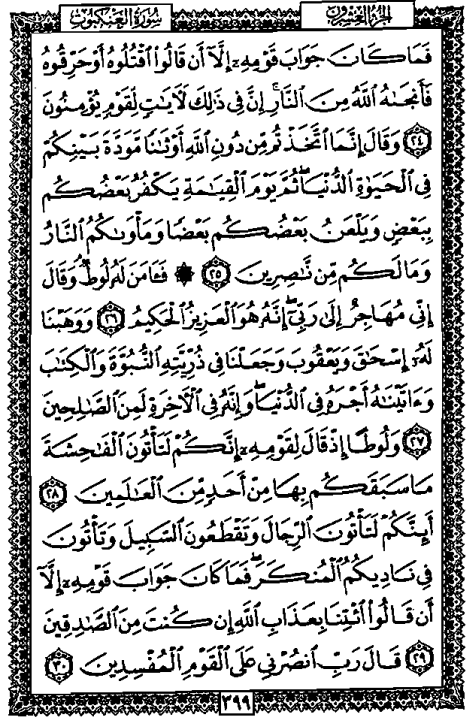 الجزء العشرون سورة العنكبوت
فَمَا كَانَ جَوَابَ قَوْمِهِۦٓ إِلَّآ أَن قَالُوا۟ ٱقْتُلُوهُ أَوْ حَرِّقُوهُ
فَأَنجَىٰهُ ٱللَّهُ مِنَ ٱلنَّارِ ۚ إِنَّ فِى ذَٰلِكَ لَـَٔايَٰتٍ لِّقَوْمٍ يُؤْمِنُونَ
٢٤ وَقَالَ إِنَّمَا ٱتَّخَذْتُم مِّن دُونِ ٱللَّهِ أَوْثَٰنًا مَّوَدَّةَ بَيْنِكُمْ
فِى ٱلْحَيَوٰةِ ٱلدُّنْيَا ۖ ثُمَّ يَوْمَ ٱلْقِيَٰمَةِ يَكْفُرُ بَعْضُكُم
بِبَعْضٍ وَيَلْعَنُ بَعْضُكُم بَعْضًا وَمَأْوَىٰكُمُ ٱلنَّارُ
وَمَا لَكُم مِّن نَّٰصِرِينَ ٢٥ ۞ فَـَٔامَنَ لَهُۥ لُوطٌ ۘ وَقَالَ
إِنِّى مُهَاجِرٌ إِلَىٰ رَبِّىٓ ۖ إِنَّهُۥ هُوَ ٱلْعَزِيزُ ٱلْحَكِيمُ ٢٦ وَوَهَبْنَا
لَهُۥٓ إِسْحَٰقَ وَيَعْقُوبَ وَجَعَلْنَا فِى ذُرِّيَّتِهِ ٱلنُّبُوَّةَ وَٱلْكِتَٰبَ
وَءَاتَيْنَٰهُ أَجْرَهُۥ فِى ٱلدُّنْيَا ۖ وَإِنَّهُۥ فِى ٱلْـَٔاخِرَةِ لَمِنَ ٱلصَّٰلِحِينَ
٢٧ وَلُوطًا إِذْ قَالَ لِقَوْمِهِۦٓ إِنَّكُمْ لَتَأْتُونَ ٱلْفَٰحِشَةَ
مَا سَبَقَكُم بِهَا مِنْ أَحَدٍ مِّنَ ٱلْعَٰلَمِينَ ٢٨
أَئِنَّكُمْ لَتَأْتُونَ ٱلرِّجَالَ وَتَقْطَعُونَ ٱلسَّبِيلَ وَتَأْتُونَ
فِى نَادِيكُمُ ٱلْمُنكَرَ ۖ فَمَا كَانَ جَوَابَ قَوْمِهِۦٓ إِلَّآ
أَن قَالُوا۟ ٱئْتِنَا بِعَذَابِ ٱللَّهِ إِن كُنتَ مِنَ ٱلصَّٰدِقِينَ
٢٩ قَالَ رَبِّ ٱنصُرْنِى عَلَى ٱلْقَوْمِ ٱلْمُفْسِدِينَ ٣٠
٣٩٩